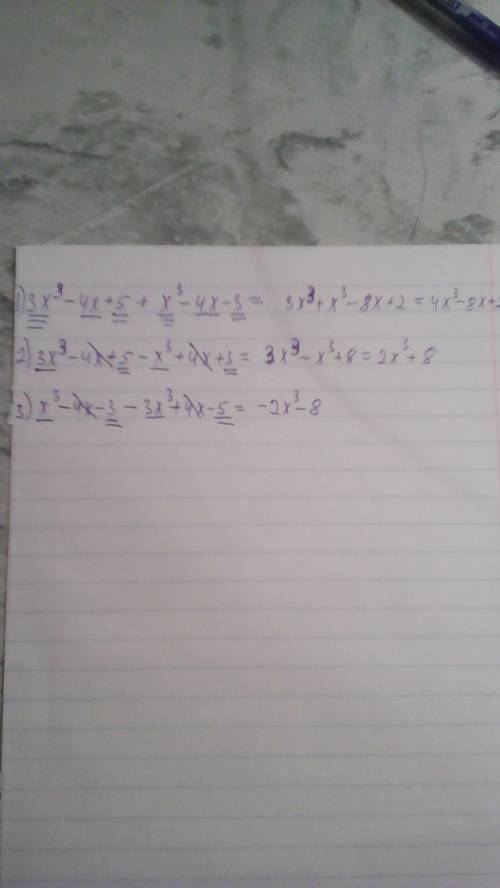 1) 3x³ - 4x + 5 + x³ - 4x - 3 = 3x³ + x³ - 8x + 2 = 4x³ - 8x + 2
2) 3x³ - 4x + 5 - x³ + 4x + 3 = 3x³ - x³ + 8 = 2x³ + 8
3) x³ - 4x - 3 - 3x³ + 4x - 5 = -2x³ - 8